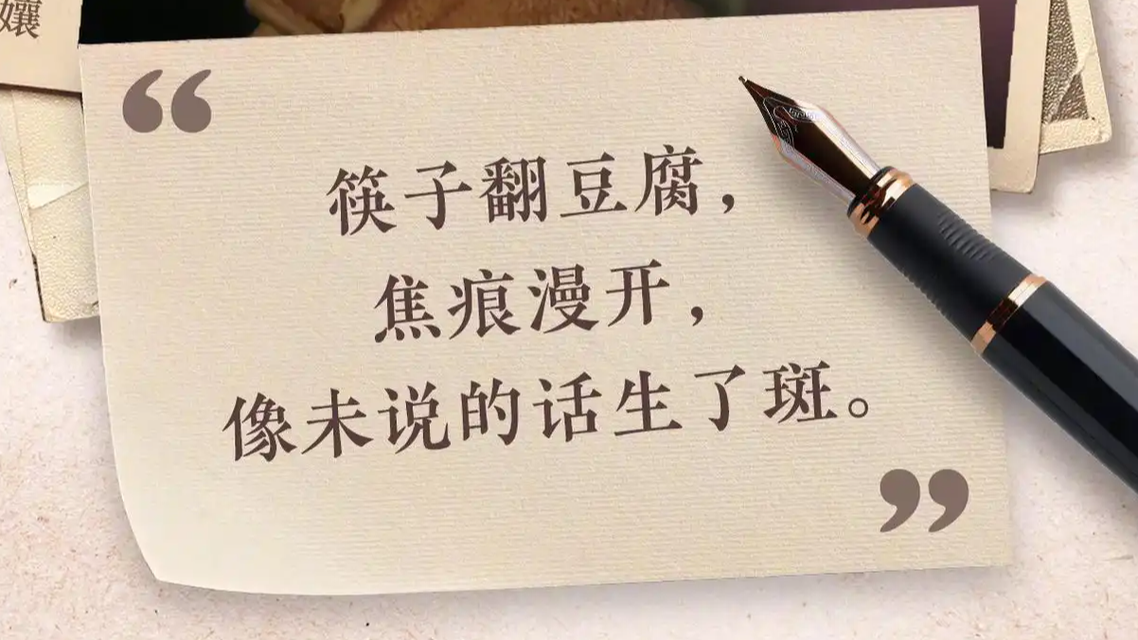 孃
“
筷子翻豆腐，
焦痕漫开，
像未说的话生了斑。
”